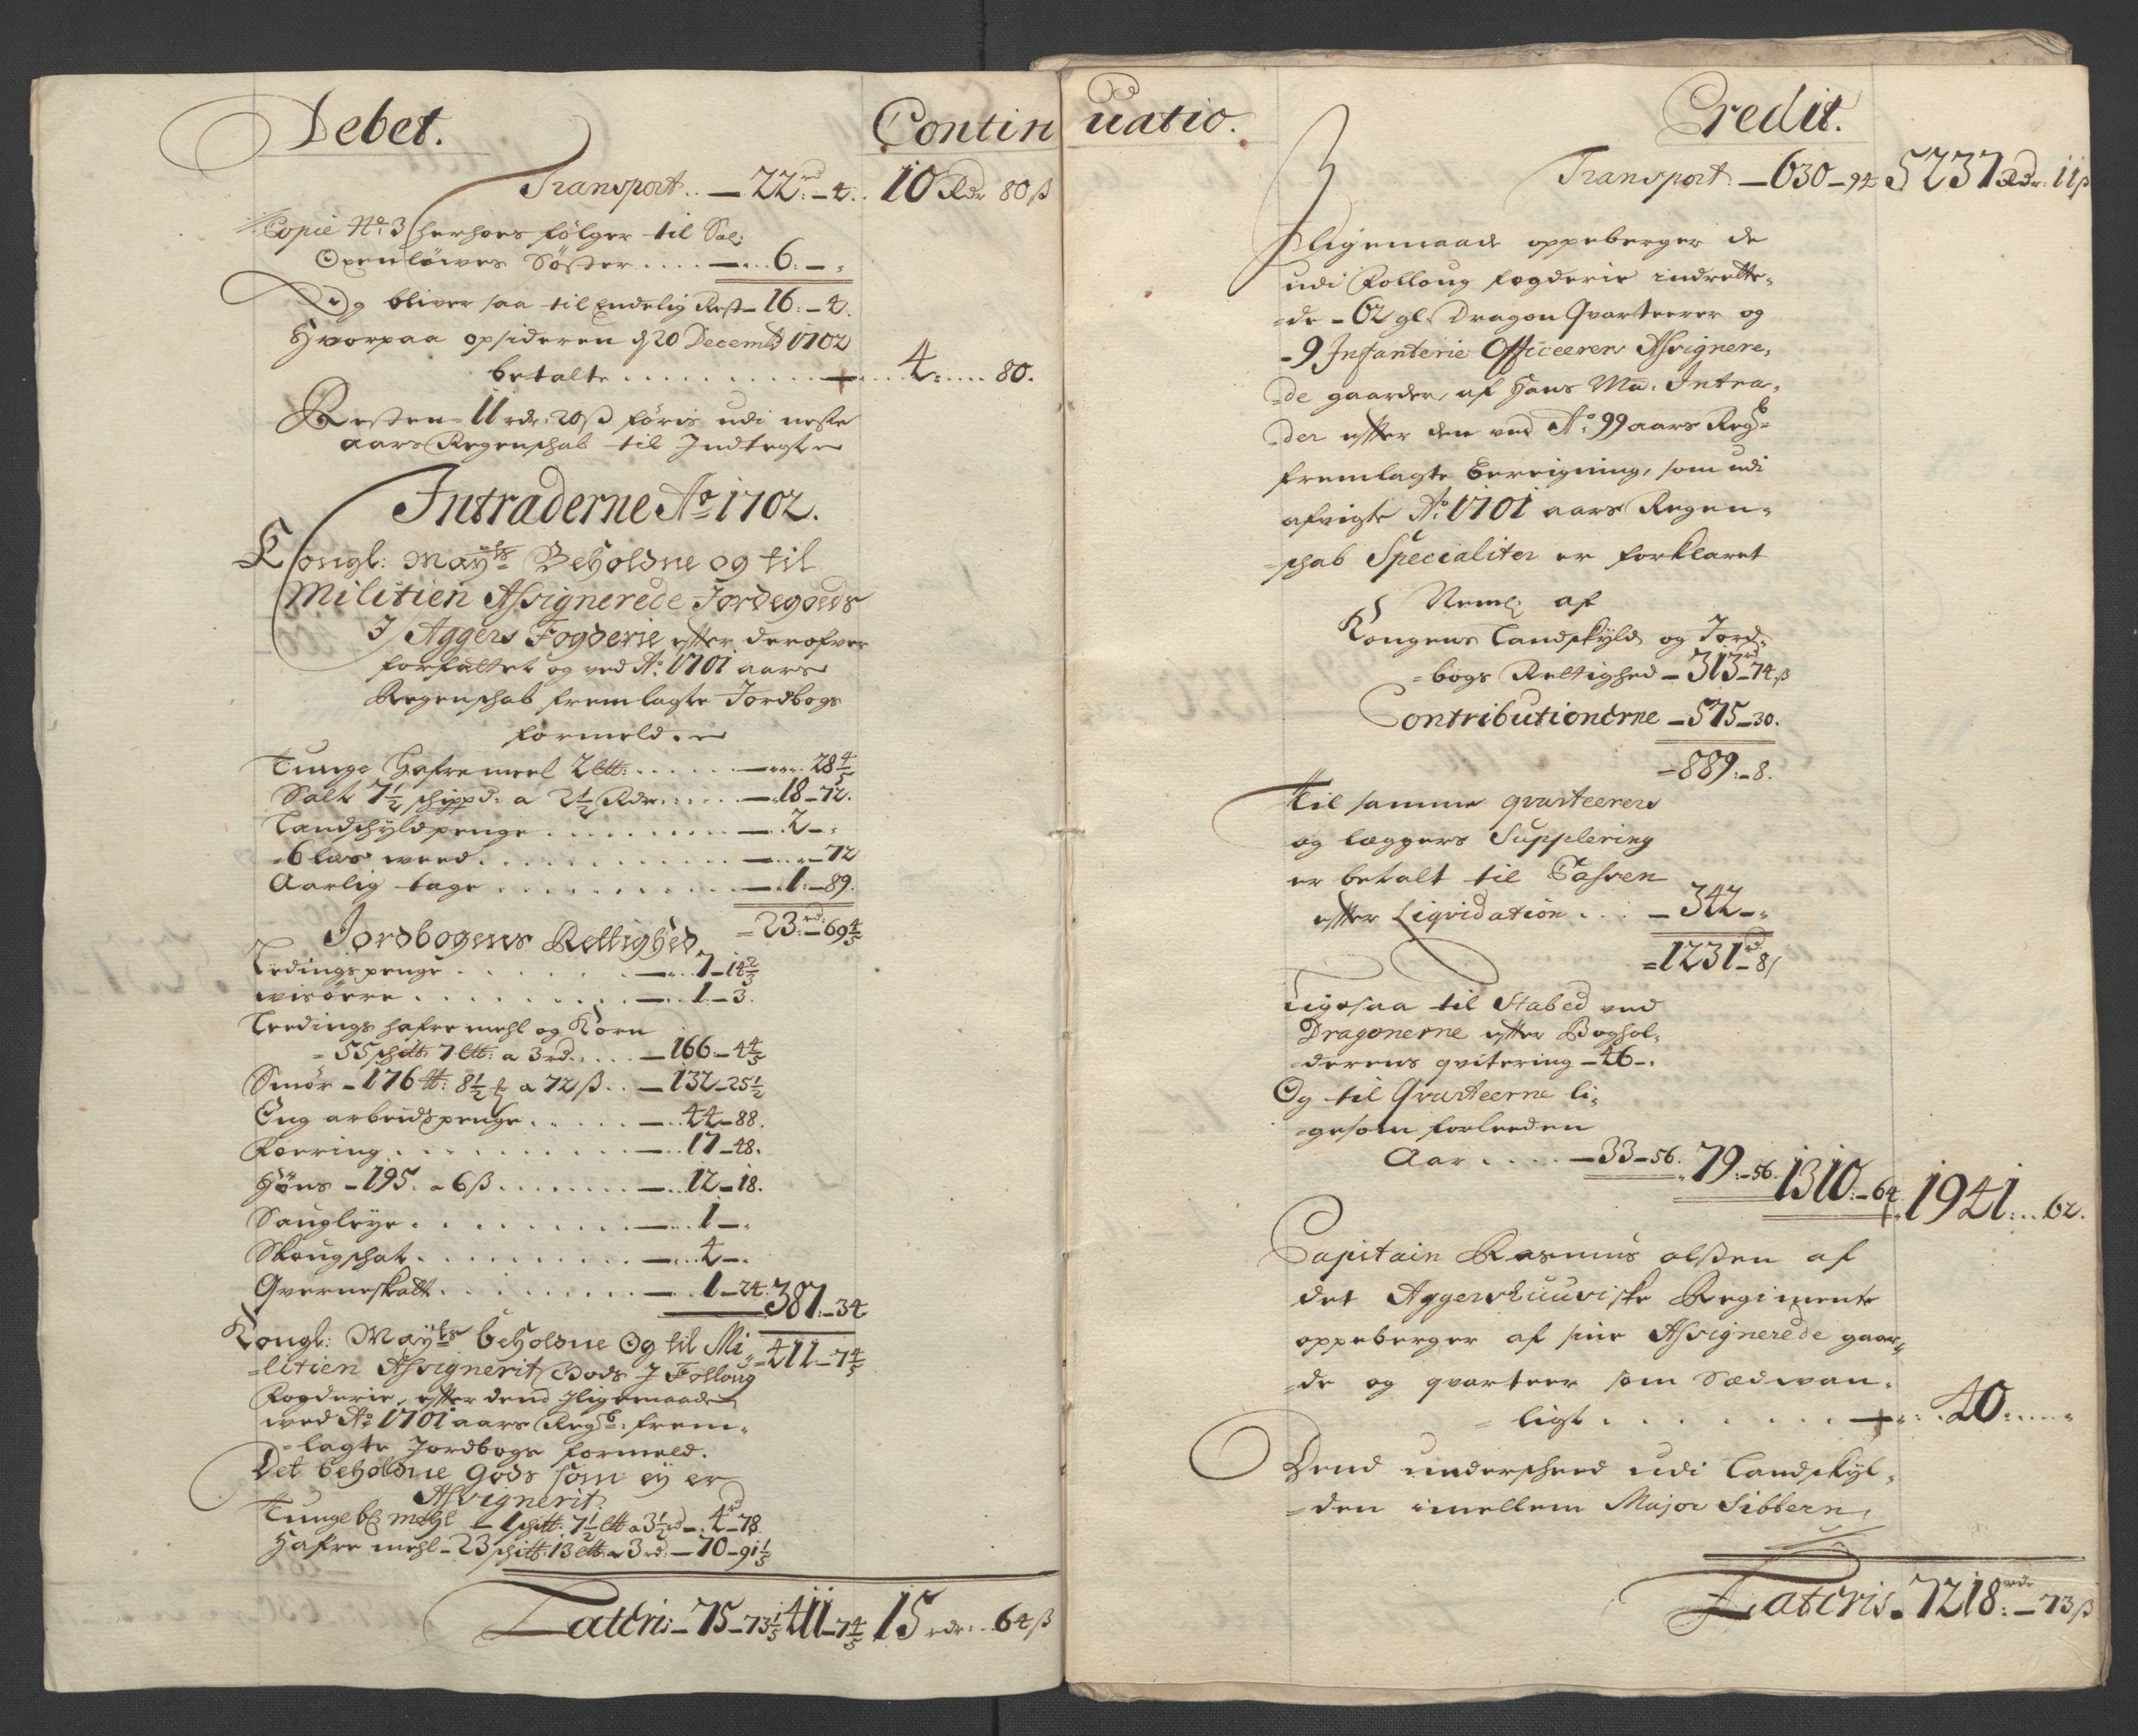 Debet.
Contin
Transport.. — 22 rd: — 4. . 10 Rdr 80 ß
Copie No: 3 herhoes følger til Sal:
Oxenløwes Søster .... — .. 6: — „
Og bliver saa til Endelig Rest — 16: — 4.
Hvorpaa opsideren d 20 Decemb 1702
betalte .......... — .... 4: .... 80.
Resten = 11 rdr: 20 ß føris udi neste
aars Regenschab til Indtegt
Intraderne Ao 1702.
Kongl: Mayts Beholdne og til
Militien Assignerede Jordegoeds
I Aggers Fogderie efter derofver
forfattet og ved Ao: 1701 aars
Regenschab fremlagte Jordbogs
formeld.
Tunge Hafremeel 2 Ltt: ...... — ... 28 4/5
Salt 7 1/2 schippd: a 2 1/2 Rdr ..... — . 18 — 72.
Landschyldpenge ......... — .. 2 — „
6 læs weed ........... — ... „ — 72
Aarlig tage ........... — . 1: — 89.
= 23 rd: — 69 4/5
Jordbogens Rettighed
Ledingspenge ....... — ... 7 — 14 2/3
wisøere .......... — .. 1. — 3.
Leedings hafre mehl og Korn
= 55 schtt: 7 Ltt: a 3 rd .... — 166 — 4 4/5
Smør — 176 tt: 8 1/2 a 72 ß .. — 132 — 25 1/2
Eng arbeidspenge ..... — .. 44 — 88.
Foering .......... — .. 17 — 48.
Høns — 195. a 6 ß ....... — .. 12 — 18.
Saugleye .......... — ... 1 — „
Skougschat ......... — ... 4 — .
Qverneskatt ......... — .. 1 — 24. 387: — 34
Kongl: Mayts beholdne Og til Mi = 411. — 7 4/5
litien Assignerit Gods I Folloug
Fogderie, efter dend Iligemaade
wed Ao 1701 aars Regb: frem,
lagte Jordbogs formeld.
Det beholdne Gods som ey er
Assignerit.
Tunge bl mehl — 1 schtt: 7 1/2 Ltt a 3 1/2 rd — . 4 rd — 78.
Hafre mehl — 23 schtt: 13 Ltt: a 3 rd: — 70 — 91 1/5
Lateris — 75 — 73 1/5 411 — 7 4/5 15 rdr: .. 64 ß
uatio.
Credit.
Transport. — 630 — 94 5237 Rdr: 11 ß
Iligemaade oppeberger de
udi Folloug fogderie indrette,
de — 62 gl. Dragon Qvarteerer og
9 Infanterie Officeerers Assignere,
de gaarder, af Hans Ma. Intra,
der efter den ved Ao: 99 aars Regb =
fremlagte bereigning, som udi
afvigte Ao: 1701 aars Regen,
schab Specialiter er forklaret
Neml: af
Kongens Landskyld og Jord,
bogs Rettighed — 313 rd — 74 ß
Contributionerne — 575 — 30.
= 889: — 8.
Til samme qvarteerers
og læggers Supplering
er betalt til Cassen
efter Liqvidation ... — 342 — „
= 1231 rd — 8
Ligesaa til Stabed ved
Dragonerne efter Boghol,
derens qvitering — 46 — .
Og til Qvarteerne li,
gesom forleeden
Aar .... — 33 — 56. 79: — 56. 1310: — 64. 1941: .. 62.
Capitain Rasmus olsen af
det Aggershuusiske Regimente
oppeberger af sine Assignerede gaar,
de og qvarteer som Sædvan,
ligt ....... — : . 40: .... „
Dend underscheed udi Landskyl,
den imellem Major Sibbern,
Lateris. 7218: rdr — 73 ß